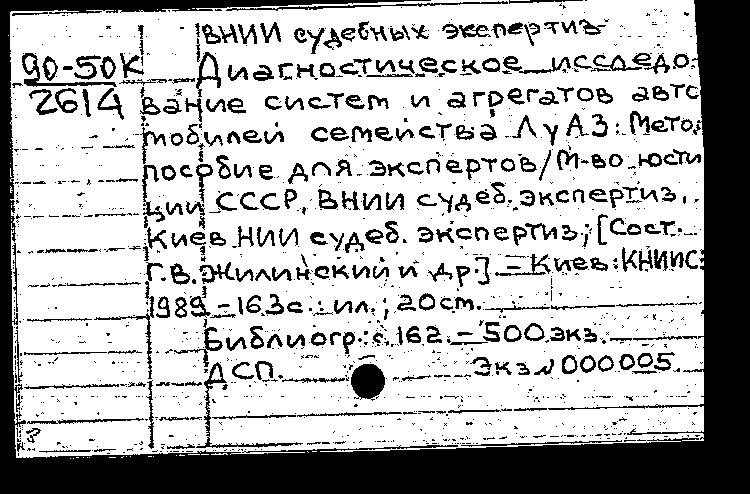 ВНИИ судебных экспертиз
90-50К
2614
Диагностическое исследо-
вание систем и агрегатов авто
мобилей семейства ЛуАЗ: Метод.
пособие для экспертов/М-во юсти
ции СССР, ВНИИ судеб. экспертиз,
Киев НИИ судеб. экспертиз; [Сост.
Г.В. Жилинский и др.] – Киев: КНИИСЭ
1989 – 163с.: ил.; 20 см.
Библиогр.: с. 162. – 500 экз.
ДСП. Экз № 000005.
8